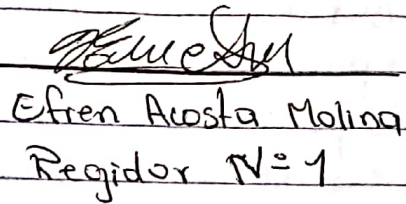 Efren Acosta Molina
Regidor Nº 1